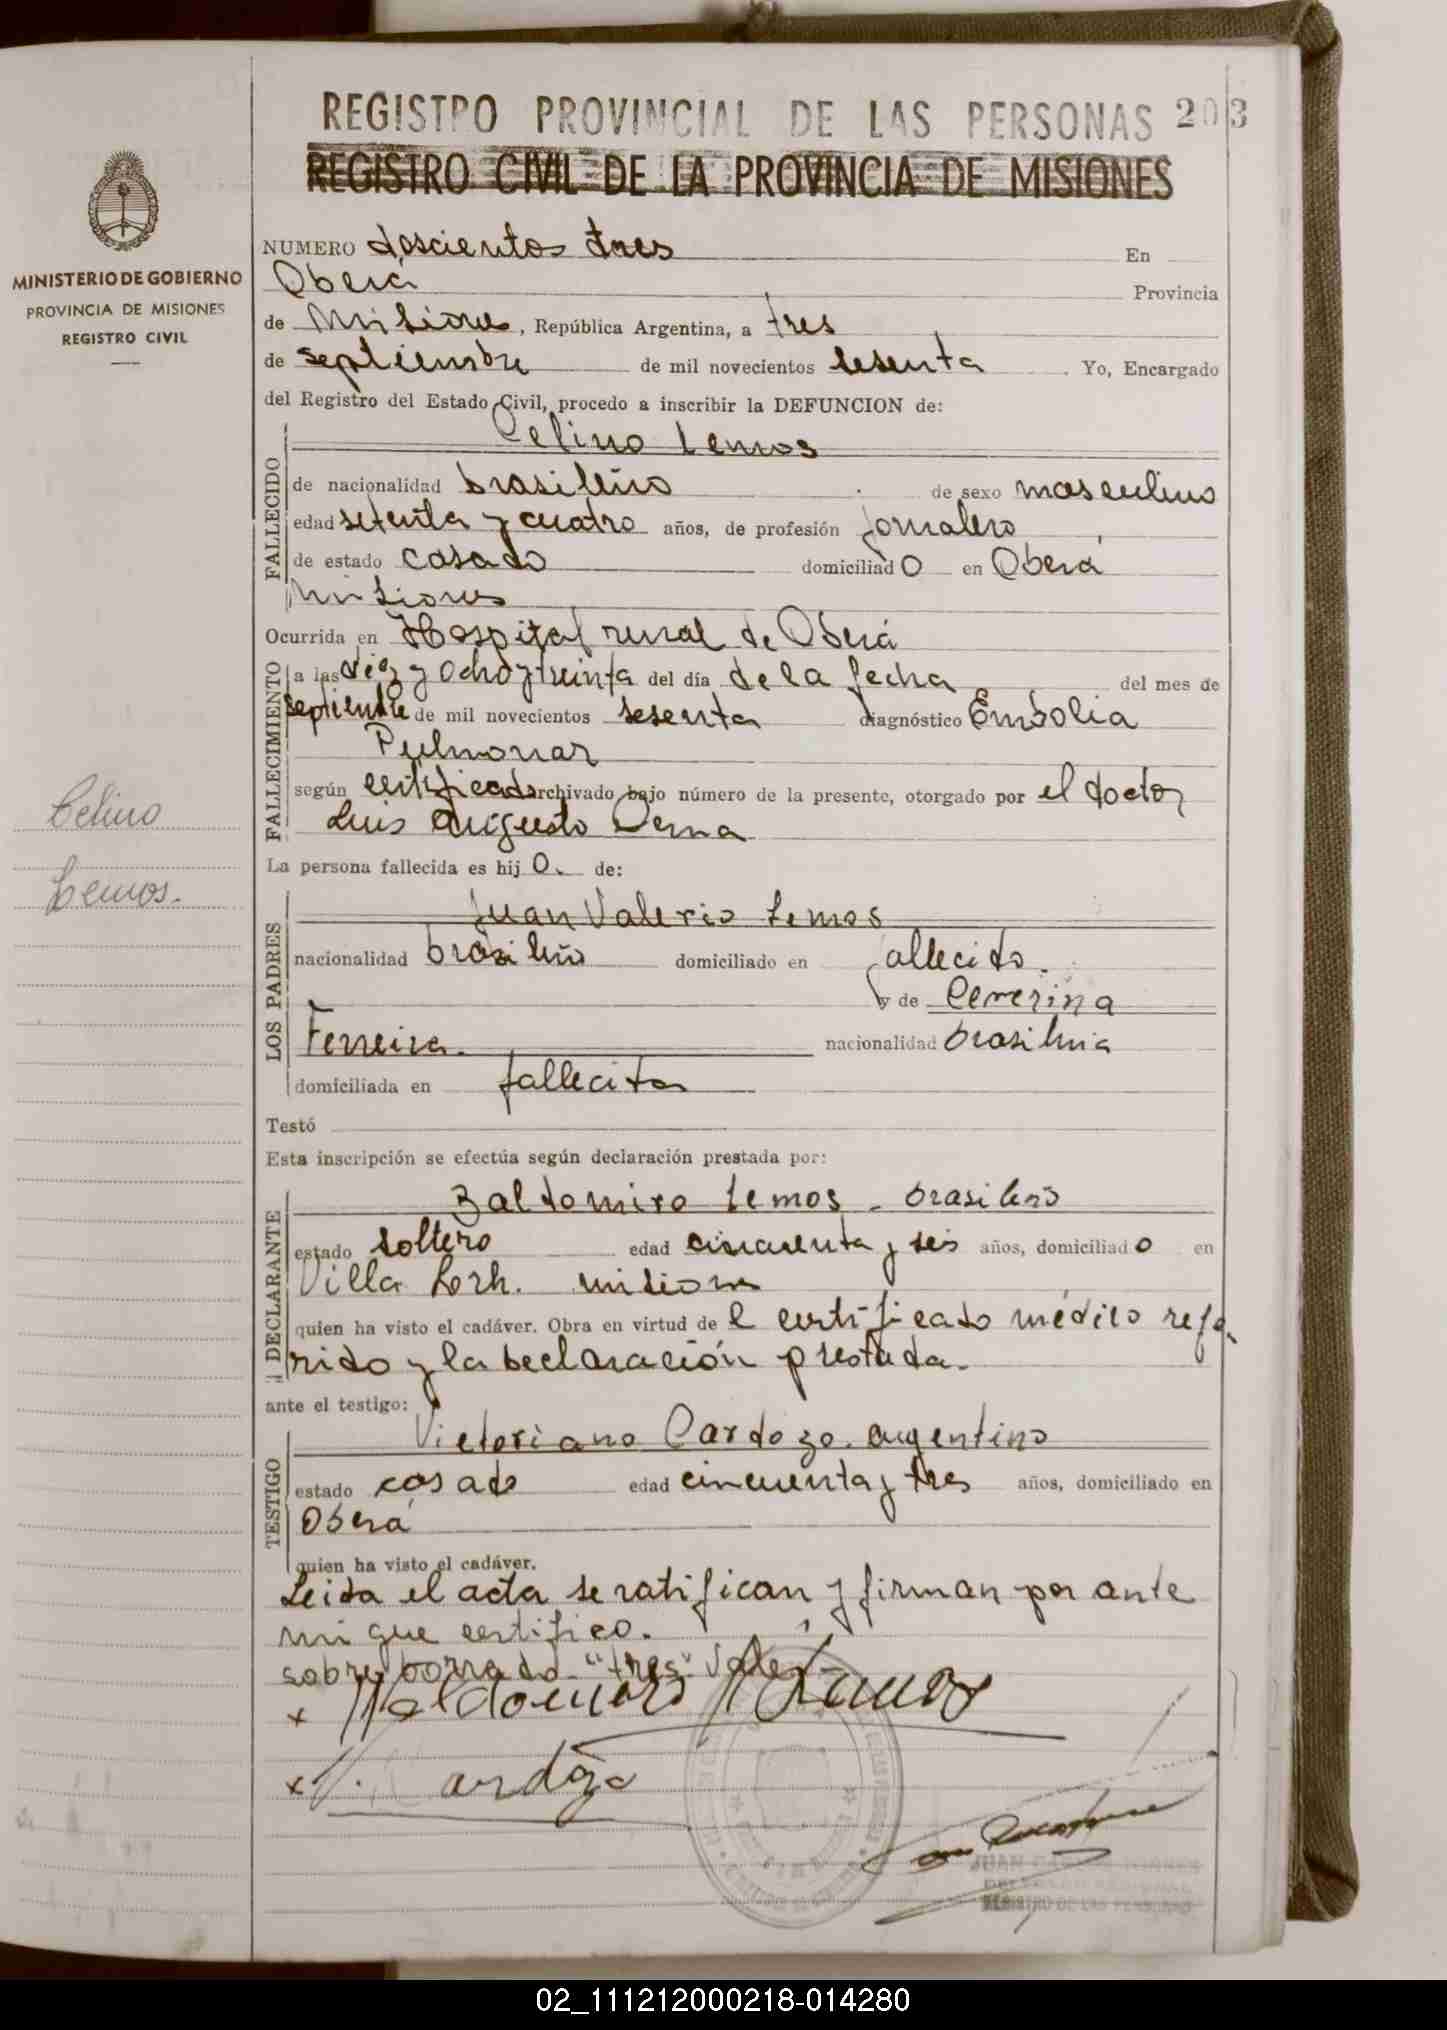 REGISTRO PROVINCIAL DE LAS PERSONAS 203
REGISTRO CIVIL DE LA PROVINCIA DE MISIONES
MINISTERIO DE GOBIERNO
PROVINCIA DE MISIONES
REGISTRO CIVIL
NUMERO doscientos tres En
Oberá Provincia
de Misiones, República Argentina, a tres
de septiembre de mil novecientos sesenta. Yo, Encargado
del Registro del Estado Civil, procedo a inscribir la DEFUNCION de:
FALLECIDO
Celino Lemos
de nacionalidad brasileño de sexo masculino
edad setenta y cuatro años, de profesión jornalero
de estado casado domiciliado en Oberá
Misiones
Ocurrida en Hospital rural de Oberá
FALLECIMIENTO
a las diez y ocho y treinta del día de la fecha del mes de
septiembre de mil novecientos sesenta diagnóstico Embolia
Pulmonar
según certificado archivado bajo número de la presente, otorgado por el doctor
Luis Augusto Derna
Celino
Lemos.
La persona fallecida es hijo. de:
LOS PADRES
Juan Valerio Lemos
nacionalidad brasileño domiciliado en fallecido.
y de Cererina
Ferreira. nacionalidad brasileña
domiciliada en fallecida
Testó
Esta inscripción se efectúa según declaración prestada por:
DECLARANTE
Baldomiro Lemos - brasileño
estado soltero edad cincuenta y seis años, domiciliado en
Villa Lorh. misiones
quien ha visto el cadáver. Obra en virtud del certificado médico refe-
rido y la declaración prestada.
ante el testigo:
TESTIGO
Victoriano Cardozo. argentino
estado casado edad cincuenta y tres años, domiciliado en
Oberá
quien ha visto el cadáver.
Leida el acta se ratifican y firman por ante
mi que certifico.
sobre borrado "tres" Vale.-
x Lemos
x V. Cardozo
JUAN
REGISTRO DE LAS PERSONAS
02_111212000218-014280